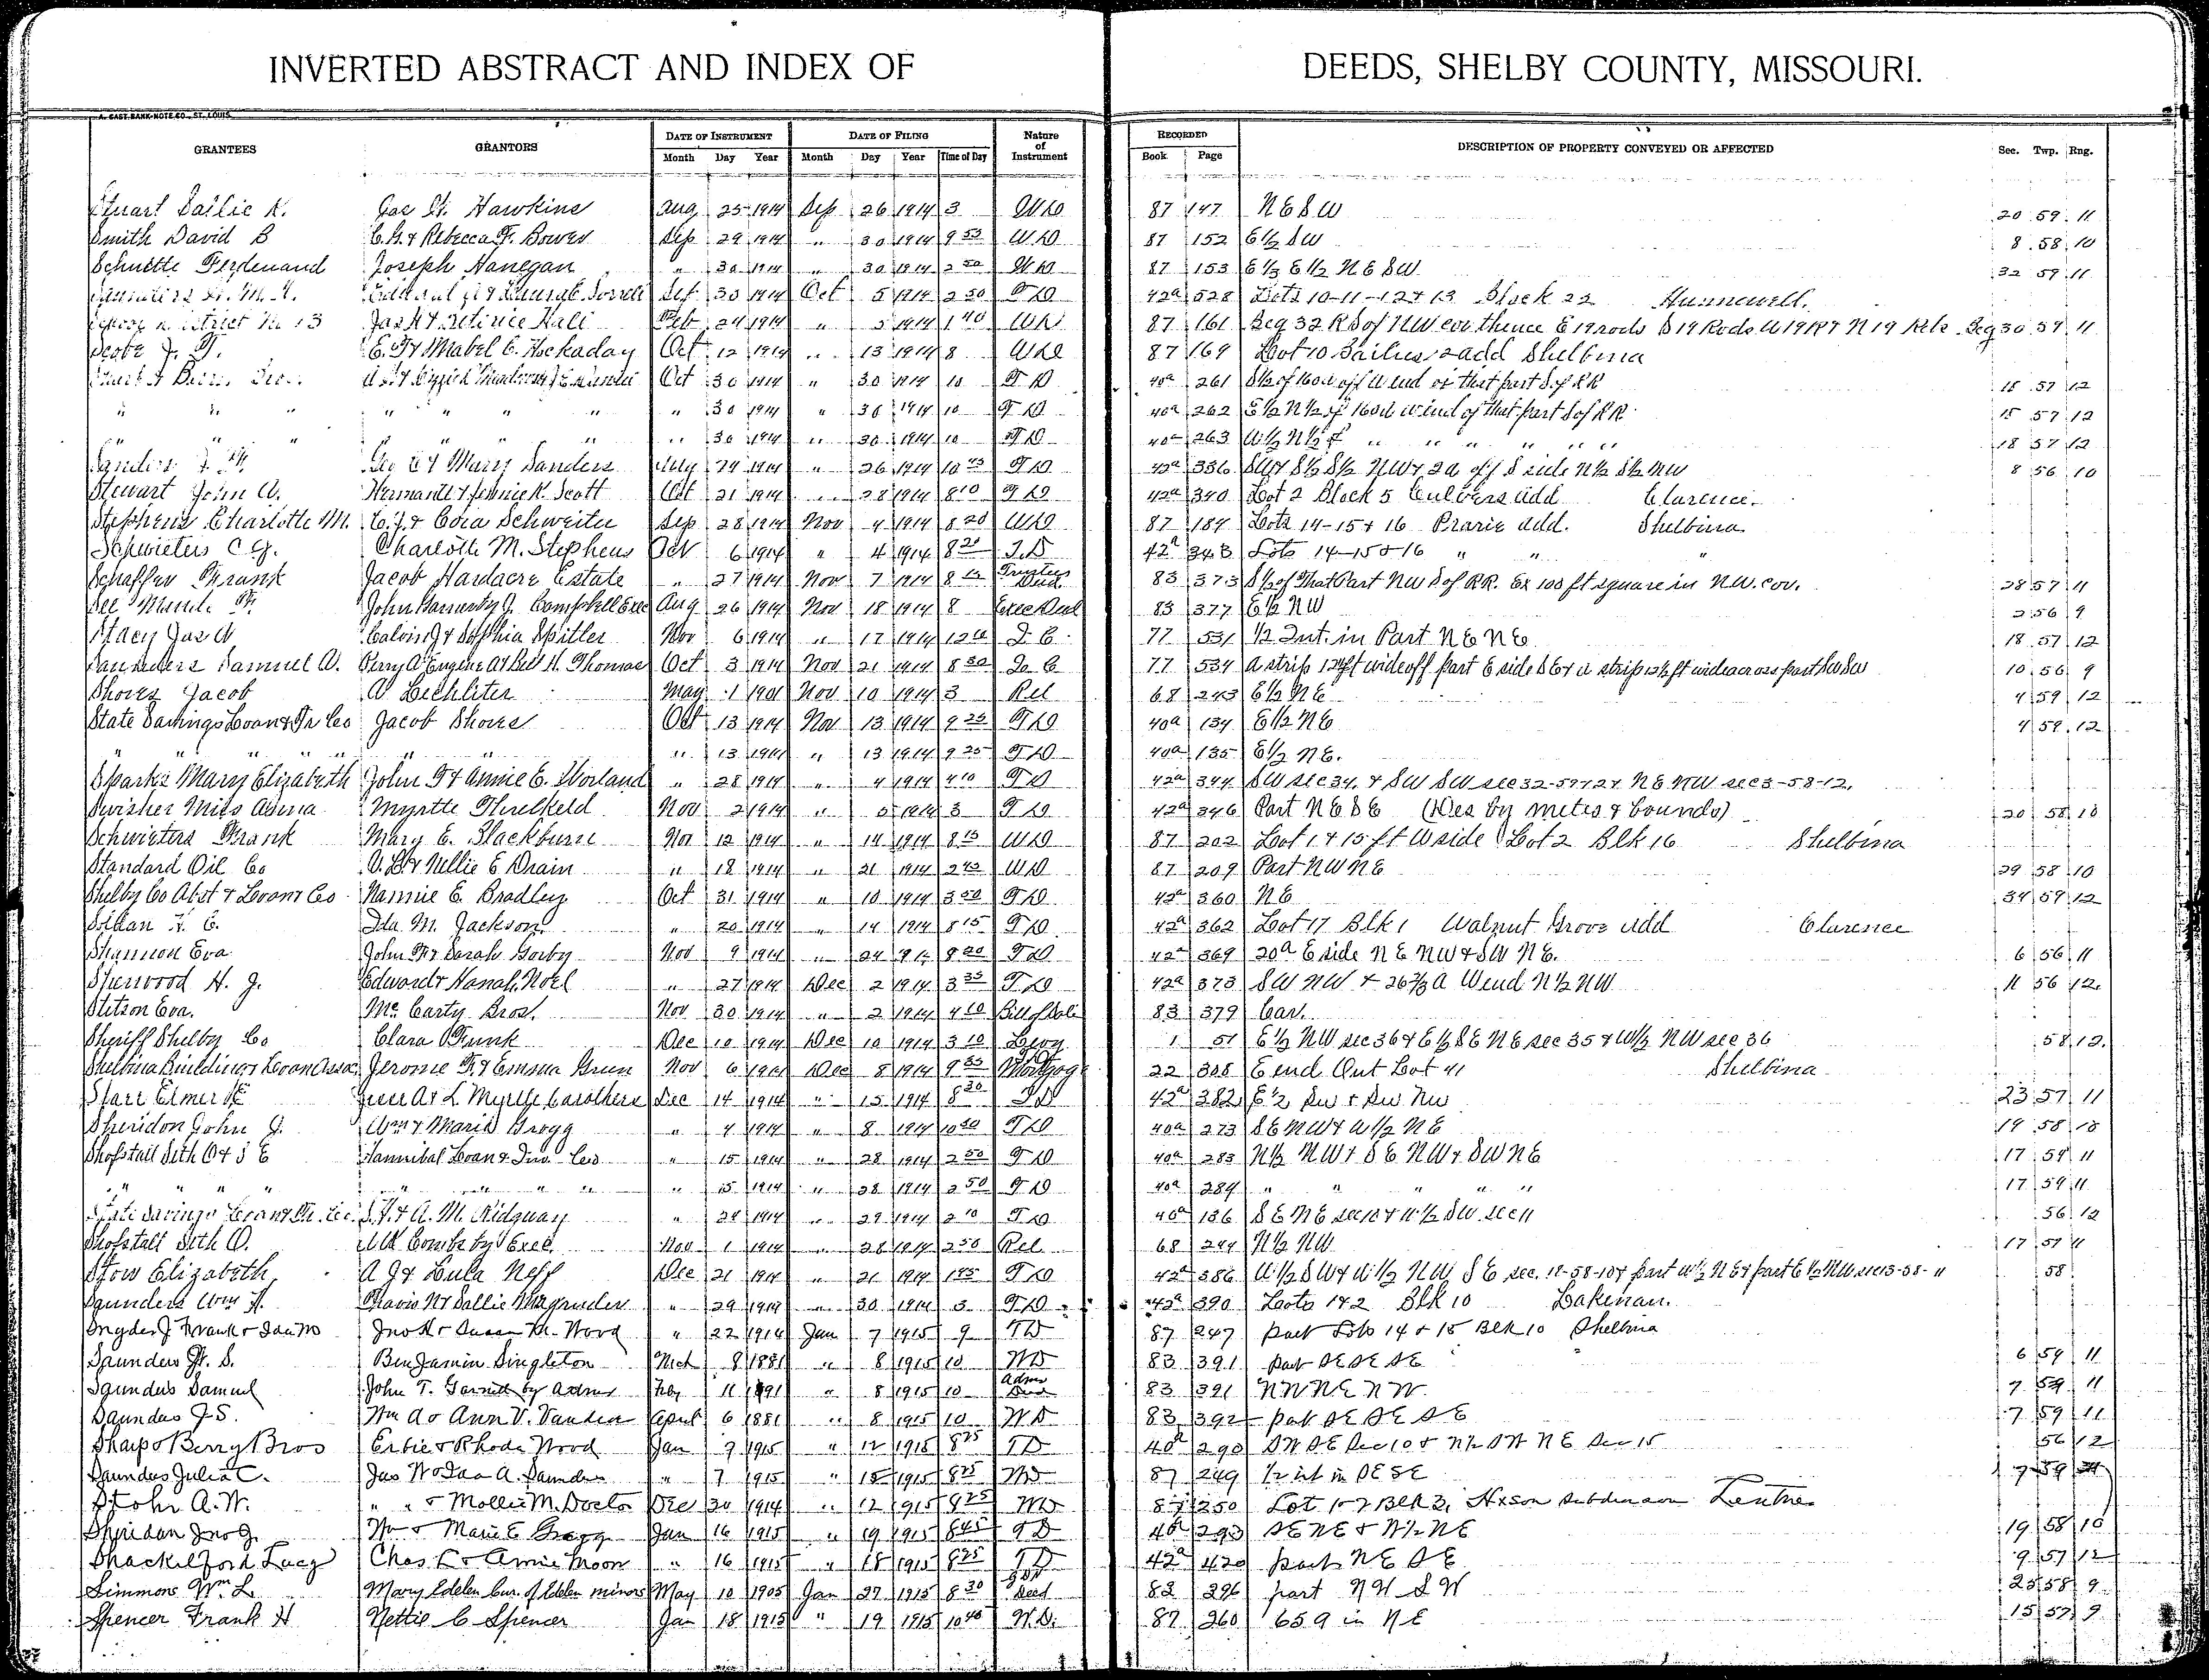 INVERTED ABSTRACT AND INDEX OF DEEDS, SHELBY COUNTY, MISSOURI.
A. GAST BANK NOTE CO., ST. LOUIS.
GRANTEES GRANTORS DATE OF INSTRUMENT DATE OF FILING Nature of Instrument RECORDED DESCRIPTION OF PROPERTY CONVEYED OR AFFECTED Sec. Twp. Rng.
Month Day Year Month Day Year Time of Day Book Page
Stuart Sallie K. Geo W. Hawkins Aug 25 1914 Sep 26 1914 3 WD 87 147 NESW 20 59 11
Smith David B C.H. & Rebecca F. Bower Sep 29 1914 " 30 1914 9 53 WD 87 152 E½ SW 8 58 10
Schuette Ferdenand Joseph Hanegan " 30 1914 " 30 1914 2 50 WD 87 153 E⅓ E½ NESW 32 59 11
Sep 30 1914 Oct 5 1914 2 50 TD 42a 528 Lots 10-11-12 & 13 Block 22 Hunnewell.
District No 13 Feb 24 1914 " 5 1914 1 40 WD 87 161 Beg 32 R S of NW cor thence E 19 rods S 19 Rods W 19 R & N 19 Rds Beg 30 57 11
Scobe J. T. E. T & Mabel C. Hockaday Oct 12 1914 " 13 1914 8 WD 87 169 Lot 10 Bailies 2 add Shelbina
Oct 30 1914 " 30 1914 10 TD 40a 261 S½ of 160a off W end of that part S of RR 18 57 12
" " " " " " " " 30 1914 " 30 1914 10 TD 40a 262 E½ N½ of 160a W end of that part S of RR 15 57 12
" " " " " " " " 30 1914 " 30 1914 10 TD 40a 263 W½ N½ of " " " " " " 18 57 12
Sanders J. M Geo E & Mary Sanders July 24 1914 " 26 1914 10 45 TD 42a 336 SW & S½ S½ NW & 2a off S side N½ S½ NW 8 56 10
Stewart John A. Herman L & Jennie K. Scott Oct 21 1914 " 28 1914 8 10 TD 42a 340 Lot 2 Block 5 Culvers add Clarence.
Stephens Charlotte M. C.J. & Cora Schweiter Sep 28 1914 Nov 4 1914 8 20 WD 87 184 Lots 14-15 & 16 Prarie add. Shelbina
Schwieters C.J. Charlotte M. Stephens Oct 6 1914 " 4 1914 8 20 T.D 42a 343 Lots 14-15 & 16 " " "
Schaffer Frank Jacob Hardacre Estate " 27 1914 Nov 7 1914 8 Trustees Deed 83 373 S½ of That Part NW S of RR. Ex 100 ft square in N.W. cor. 28 57 11
See Maude F. Aug 26 1914 Nov 18 1914 8 Exec Deed 83 377 E½ NW 2 56 9
Stacy Jas W Calvin J & Sophia Spitler Nov 6 1914 " 17 1914 Q. C. 77 531 ½ Int. in Part NENE 18 57 12
Saunders Samuel A. Perry A Eugene A & Bell H. Thomas Oct 3 1914 Nov 21 1914 8 30 Q. C. 77 534 10 56 9
Shores Jacob A. Lechliter May 1 1901 Nov 10 1914 3 Rel 68 243 E½ NE 4 59 12
State Savings Loan & Tr Co Jacob Shores Oct 13 1914 Nov 13 1914 9 25 TD 40a 134 E½ NE 4 59 12
" " " " " " " " 13 1914 " 13 1914 9 25 TD 40a 135 E½ NE.
Sparks Mary Elizabeth John T & Annie E. Worland " 28 1914 " 4 1914 4 10 TD 42a 344 SW sec 34, & SW SW sec 32-59 & 24 NENW sec 3-58-12.
Swisher Miss Anna Myrtte Threlkeld Nov 2 1914 " 5 1914 3 TD 42a 346 Part NESE (Des by metes & bounds) 20 58 10
Schwieters Frank Mary E. Blackburn Nov 12 1914 " 14 1914 8 15 WD 87 202 Lot 1 & 15 ft W side Lot 2 Blk 16 Shelbina
Standard Oil Co A. L. & Nellie E Drain " 18 1914 " 21 1914 2 45 WD 87 209 Part NWNE 29 58 10
Shelby Co Abst & Loan Co Nannie E. Bradley Oct 31 1914 " 10 1914 3 50 TD 42a 360 NE 34 59 12
Ida M. Jackson " 20 1914 " 14 1914 8 15 TD 42a 362 Lot 17 Blk 1 Walnut Grove add Clarence
Shannon Eva John F & Sarah Gorby Nov 9 1914 " 24 1914 8 20 TD 42a 369 20a E side NENW & SW NE. 6 56 11
Sherwood H. J. Edward & Hanah Noel " 27 1914 Dec 2 1914 3 35 TD 42a 373 SW NW & 26⅔ a W end N½ NW 11 56 12
Stitson Eva. Mc Carty Bros. Nov 30 1914 " 2 1914 4 10 Bill of Sale 83 379 Car.
Sheriff Shelby Co Clara Funk Dec 10 1914 Dec 10 1914 3 10 Levy 1 51 E½ NW sec 36 & E½ SE NE sec 35 & W½ NW sec 36 58 12
Shelbina Building & Loan Assoc. Jerome F. & Emma Green Nov 6 1914 Dec 8 1914 9 35 Mortgage 22 308 E end Out Lot 41 Shelbina
Starr Elmer E & L Myrtle Carothers Dec 14 1914 " 15 1914 8 30 TD 42a 382 E½ SW & SW NW 23 57 11
Sheridon John J. Wm & Maria Gragg " 4 1914 " 8 1914 10 40 TD 40a 273 SENW & W½ NE 19 58 10
Shofstall Seth O & S E Hannibal Loan & Inv. Co " 15 1914 " 28 1914 2 50 TD 40a 283 N½ NW & SE NW & SWNE 17 59 11
" " " " " " " " 15 1914 " 28 1914 2 50 TD 40a 284 " " " " " 17 59 11
State Savings Loan & Tr. Co. S. F. & A. M. Ridgway " 24 1914 " 29 1914 2 10 TD 40a 136 SENE sec 10 & W½ SW sec 11 56 12
Shofstall Seth O. Combs by Exec. Nov 1 1914 " 28 1914 2 50 Rel 68 244 N½ NW 17 59 11
Stow Elizabeth A J & Lula Neff Dec 21 1914 " 21 1914 1 45 TD 42a 386 W½ SW & W½ NW SE sec. 12-58-10 & part W½ NE & part E½ NW sec 13-58-11 58
Saunders Wm H. Travis N & Sallie Magruder " 29 1914 " 30 1914 3 TD 42a 390 Lots 1 & 2 Blk 10 Lakenan.
Snyder J Frank & Ida M Jno H & Susan M. Wood " 22 1914 Jan 7 1915 9 TD 87 247 part Lots 14 & 15 Blk 10 Shelbina
Saunders J. S. Benjamin Singleton Mch 8 1881 " 8 1915 10 WD 83 391 part SE SE SE 6 59 11
Saunders Samuel John T. Garnett by Admr Feby 11 1891 " 8 1915 10 Admr Deed 83 391 NWNENW. 7 59 11
Saunders J. S. Wm A & Ann V. Vanden April 6 1881 " 8 1915 10 W.D. 83 392 part SE SE SE 7 59 11
Sharp & Berry Bros Erbie & Rhoda Wood Jan 9 1915 " 12 1915 8 25 TD 40a 290 SW SE Sec 10 & N½ SW NE Sec 15 56 12
Saunders Julia C. Jas W & Ida A. Saunders " 7 1915 " 15 1915 8 25 WD 87 249 ½ int in SE SE 7 59
Stohr A. W. " " & Mollie M. Doctor Dec 30 1914 " 12 1915 8 25 WD 87 250 Lot 1 & 2 Blk 3, Hixson subdivision Lentner
Sheridan Jno J. Wm & Marie E Gragg Jan 16 1915 " 19 1915 8 45 TD 40a 293 SENE & W½ NE 19 58 10
Shackelford Lucy Chas. L & Annie Moon " 16 1915 " 18 1915 8 25 TD 42a 420 part NE SE 9 57 12
Simmons Wm L. Mary Edelen Cur. of Edelen minors May 10 1905 Jan 27 1915 8 30 Deed 83 396 part NW SW 25 58 9
Spencer Frank H Nettie C Spencer Jan 18 1915 " 19 1915 10 40 W.D. 87 260 65 a in NE 15 57 9